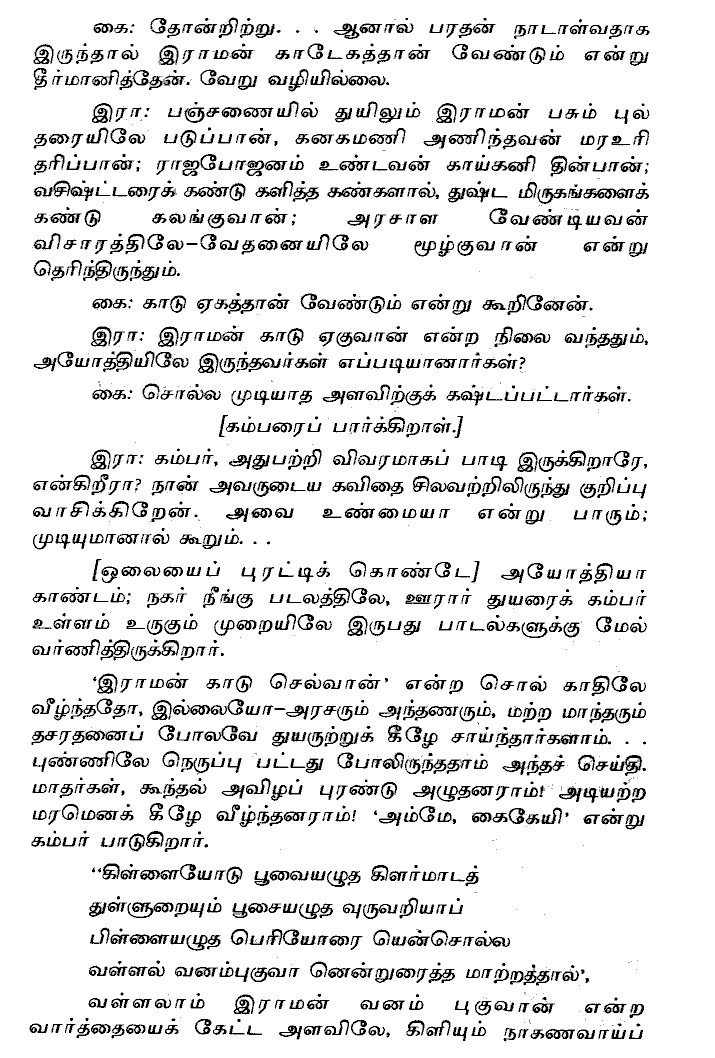 கை: தோன்றிற்று. . . ஆனால் பரதன் நாடாள்வதாக
இருந்தால் இராமன் காடேகத்தான் வேண்டும் என்று
தீர்மானித்தேன். வேறு வழியில்லை.
இரா: பஞ்சணையில் துயிலும் இராமன் பசும் புல்
தரையிலே படுப்பான், கனகமணி அணிந்தவன் மரஉரி
தரிப்பான்; ராஜபோஜனம் உண்டவன் காய்கனி தின்பான்;
வசிஷ்ட்டரைக் கண்டு களித்த கண்களால், துஷ்ட மிருகங்களைக்
கண்டு கலங்குவான்; அரசாள வேண்டியவன்
விசாரத்திலே–வேதனையிலே மூழ்குவான் என்று
தெரிந்திருந்தும்.
கை: காடு ஏகத்தான் வேண்டும் என்று கூறினேன்.
இரா: இராமன் காடு ஏகுவான் என்ற நிலை வந்ததும்,
அயோத்தியிலே இருந்தவர்கள் எப்படியானார்கள்?
கை: சொல்ல முடியாத அளவிற்குக் கஷ்டப்பட்டார்கள்.
[கம்பரைப் பார்க்கிறாள்.]
இரா: கம்பர், அதுபற்றி விவரமாகப் பாடி இருக்கிறாரே,
என்கிறீரா? நான் அவருடைய கவிதை சிலவற்றிலிருந்து குறிப்பு
வாசிக்கிறேன். அவை உண்மையா என்று பாரும்;
முடியுமானால் கூறும். . .
[ஓலையைப் புரட்டிக் கொண்டே] அயோத்தியா
காண்டம்; நகர் நீங்கு படலத்திலே, ஊரார் துயரைக் கம்பர்
உள்ளம் உருகும் முறையிலே இருபது பாடல்களுக்கு மேல்
வர்ணித்திருக்கிறார்.
‘இராமன் காடு செல்வான்’ என்ற சொல் காதிலே
வீழ்ந்ததோ, இல்லையோ–அரசரும் அந்தணரும், மற்ற மாந்தரும்
தசரதனைப் போலவே துயருற்றுக் கீழே சாய்ந்தார்களாம். . .
புண்ணிலே நெருப்பு பட்டது போலிருந்ததாம் அந்தச் செய்தி.
மாதர்கள், கூந்தல் அவிழப் புரண்டு அழுதனராம்! அடியற்ற
மரமெனக் கீழே வீழ்ந்தனராம்! ‘அம்மே, கைகேயி’ என்று
கம்பர் பாடுகிறார்.
“கிள்ளையோடு பூவையழுத கிளர்மாடத்
துள்ளுறையும் பூசையழுத வுருவறியாப்
பிள்ளையழுத பெரியோரை யென்சொல்ல
வள்ளல் வனம்புகுவா னென்றுரைத்த மாற்றத்தால்’,
வள்ளலாம் இராமன் வனம் புகுவான் என்ற
வார்த்தையைக் கேட்ட அளவிலே, கிளியும் நாகணவாய்ப்